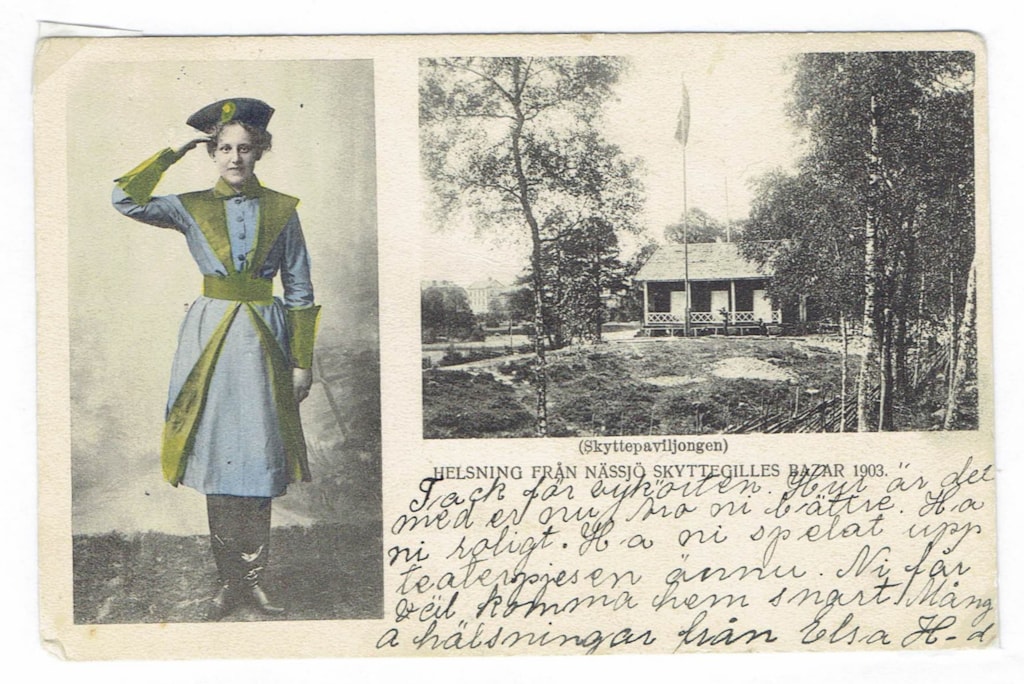 (Skyttepaviljongen)
HELSNING FRÅN NÄSSJÖ SKYTTEGILLES BAZAR 1903.
Tack för vykorten. Hur är det
med er nu, tro ni bättre. Ha
ni roligt. Ha ni spelat upp
teaterpjesen ännu. Ni får
väl komma hem snart. Mång
a hälsningar från Elsa H-d